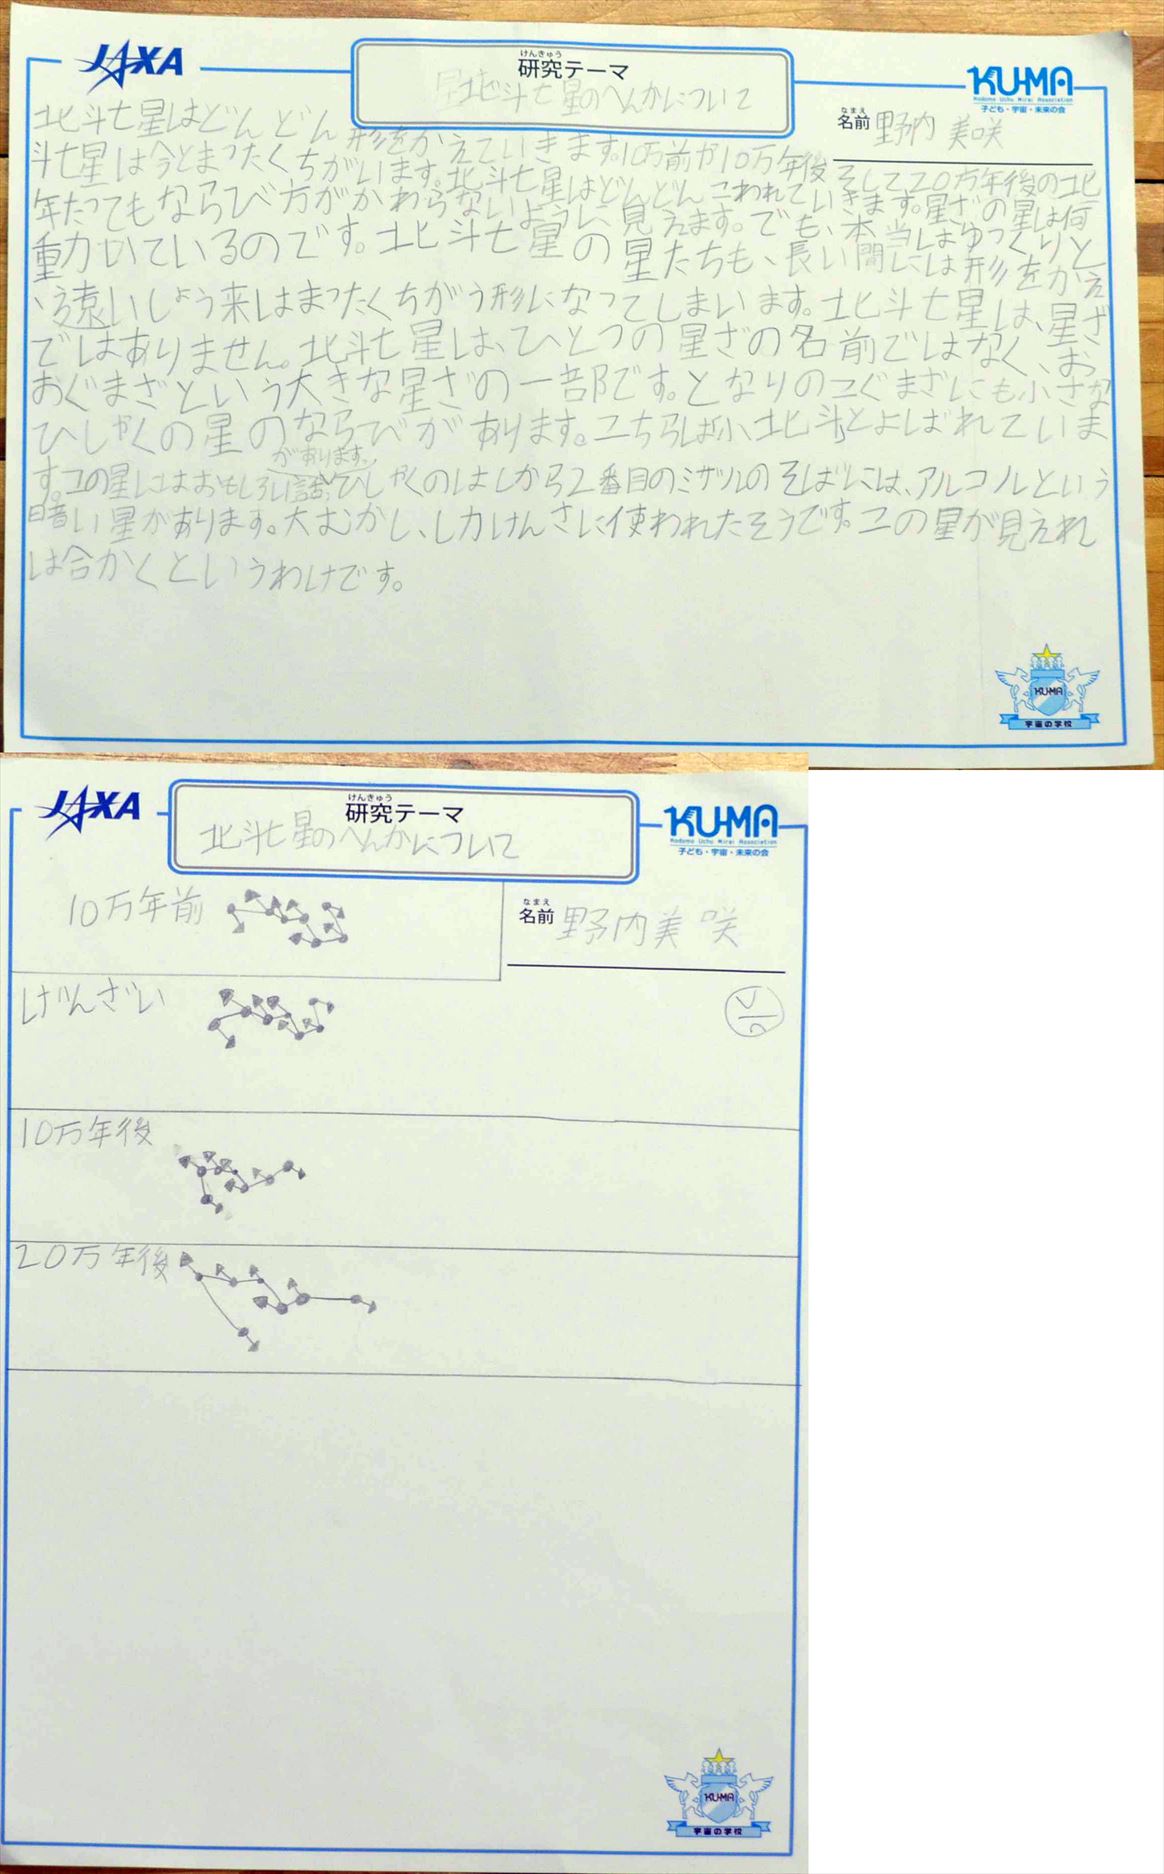 JAXA
けんきゅう
研究テーマ
北斗七星のへんかについて
KU-MA
Kodomo Uchu Mirai Association
子ども・宇宙・未来の会
なまえ
名前 野内 美咲
北斗七星はどんどん形をかえていきます。10万前や10万年後そして20万年後の北
斗七星は今とまったくちがいます。北斗七星はどんどんこわれていきます。星ざの星は何
年たってもならび方がかわらないように見えます。でも、本当はゆっくりと
動いているのです。北斗七星の星たちも、長い間には形をかえ
、遠いしょう来はまったくちがう形になってしまいます。北斗七星は、星ざ
ではありません。北斗七星は、ひとつの星ざの名前ではなく、お
おぐまざという大きな星ざの一部です。となりのこぐまざにも小さな
ひしゃくの星のならびがあります。こちらは小北斗とよばれていま
す。この星にはおもしろい話があります。ひしゃくのはしから2番目のミザルのそばには、アルコルという
暗い星があります。大むかし、し力けんさに使われたそうです。この星が見えれ
ば合かくというわけです。
KU-MA
宇宙の学校
JAXA
けんきゅう
研究テーマ
北斗七星のへんかについて
KU-MA
Kodomo Uchu Mirai Association
子ども・宇宙・未来の会
なまえ
名前 野内美咲
10万年前
げんざい
10万年後
20万年後
KU-MA
宇宙の学校